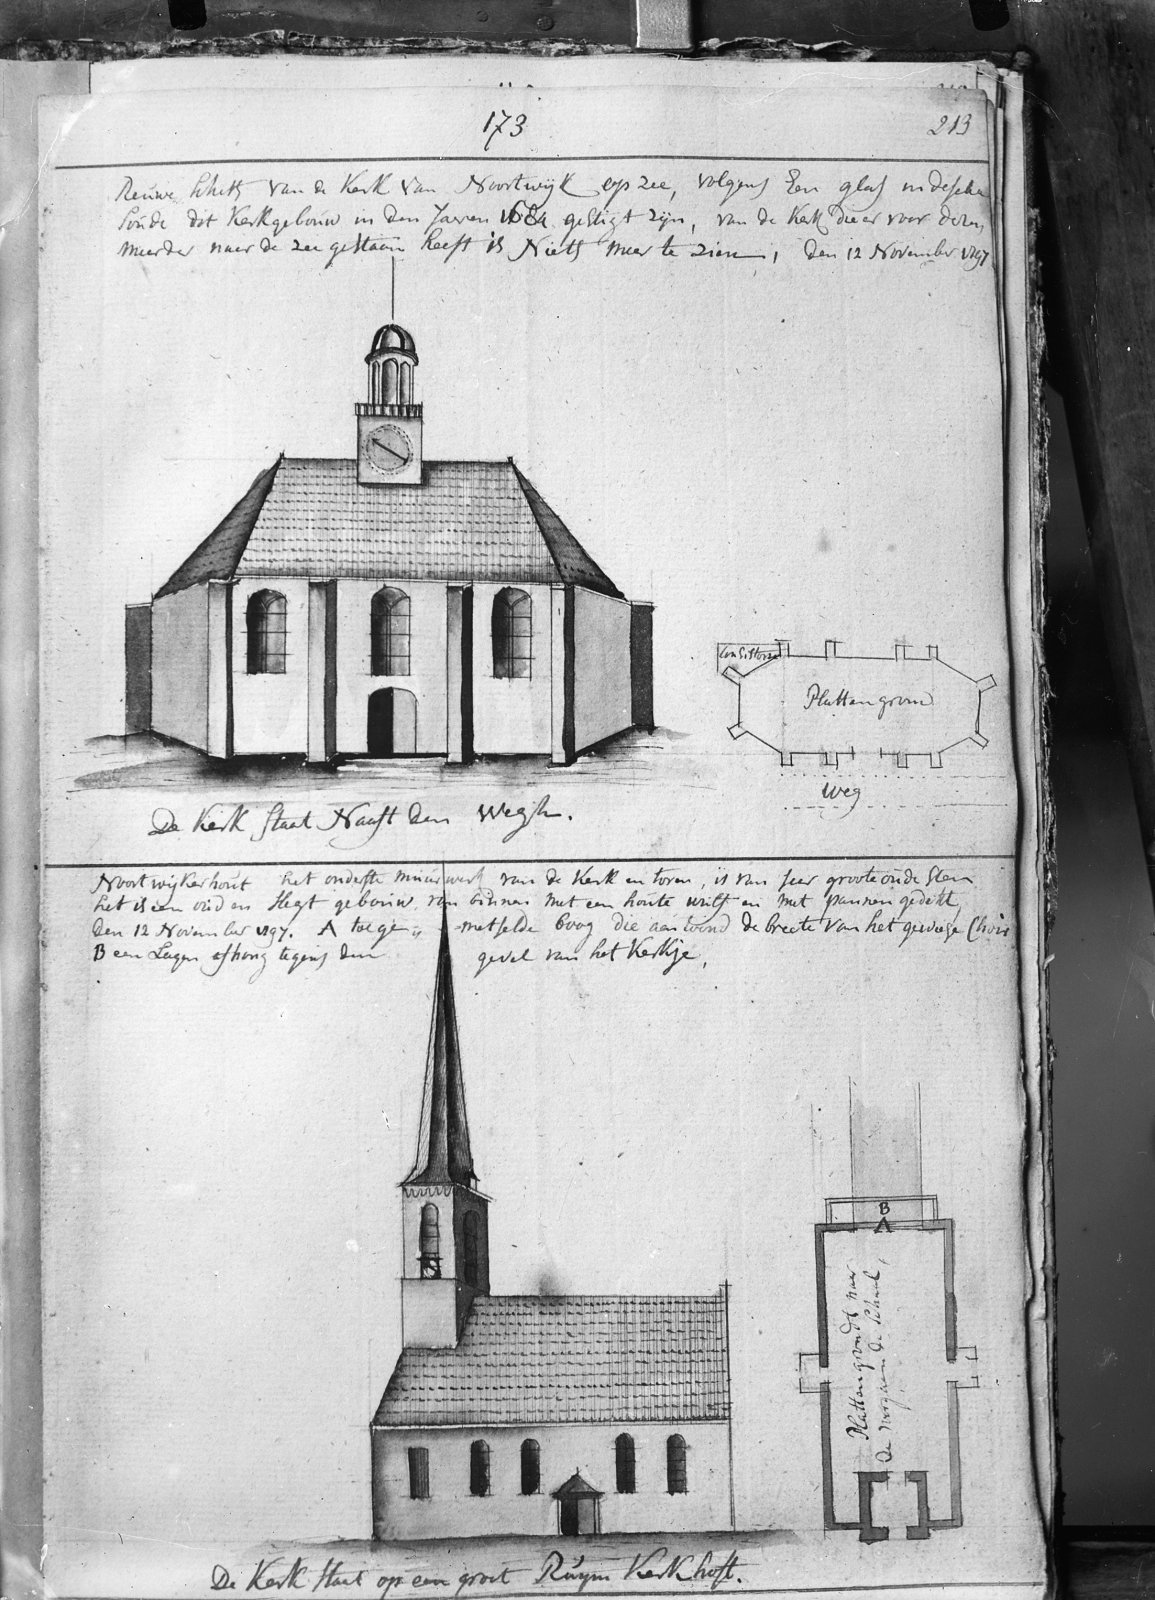 173
213
Nieuwe schets van de Kerk van Noortwijk op zee, volgens Een glas in deselve
soude dit Kerkgebouw in den Jaeren 16 gestigt zijn, van de Kerk die er voor desen
meerder naer de zee gestaan heeft is Niets meer te zien, den 12 November 1797
Consistorie
Plattengrond
Weg
De Kerk staat Naast den Wegh.
Noortwijkerhout het onderste muurwerk van de Kerk en toren, is van seer groote oude steen
het is een oud en slegt gebouw van binnen met een houte wulft en met pannen gedekt,
den 12 November 1797. A toege metselde boog die aantoond de breete van het geweese Choir
B een Lagen afhang tegens den gevel van het Kerkje,
B
A
Plattengrondt naer
de
De Kerk staat op een groot Ruym Kerkhoft.